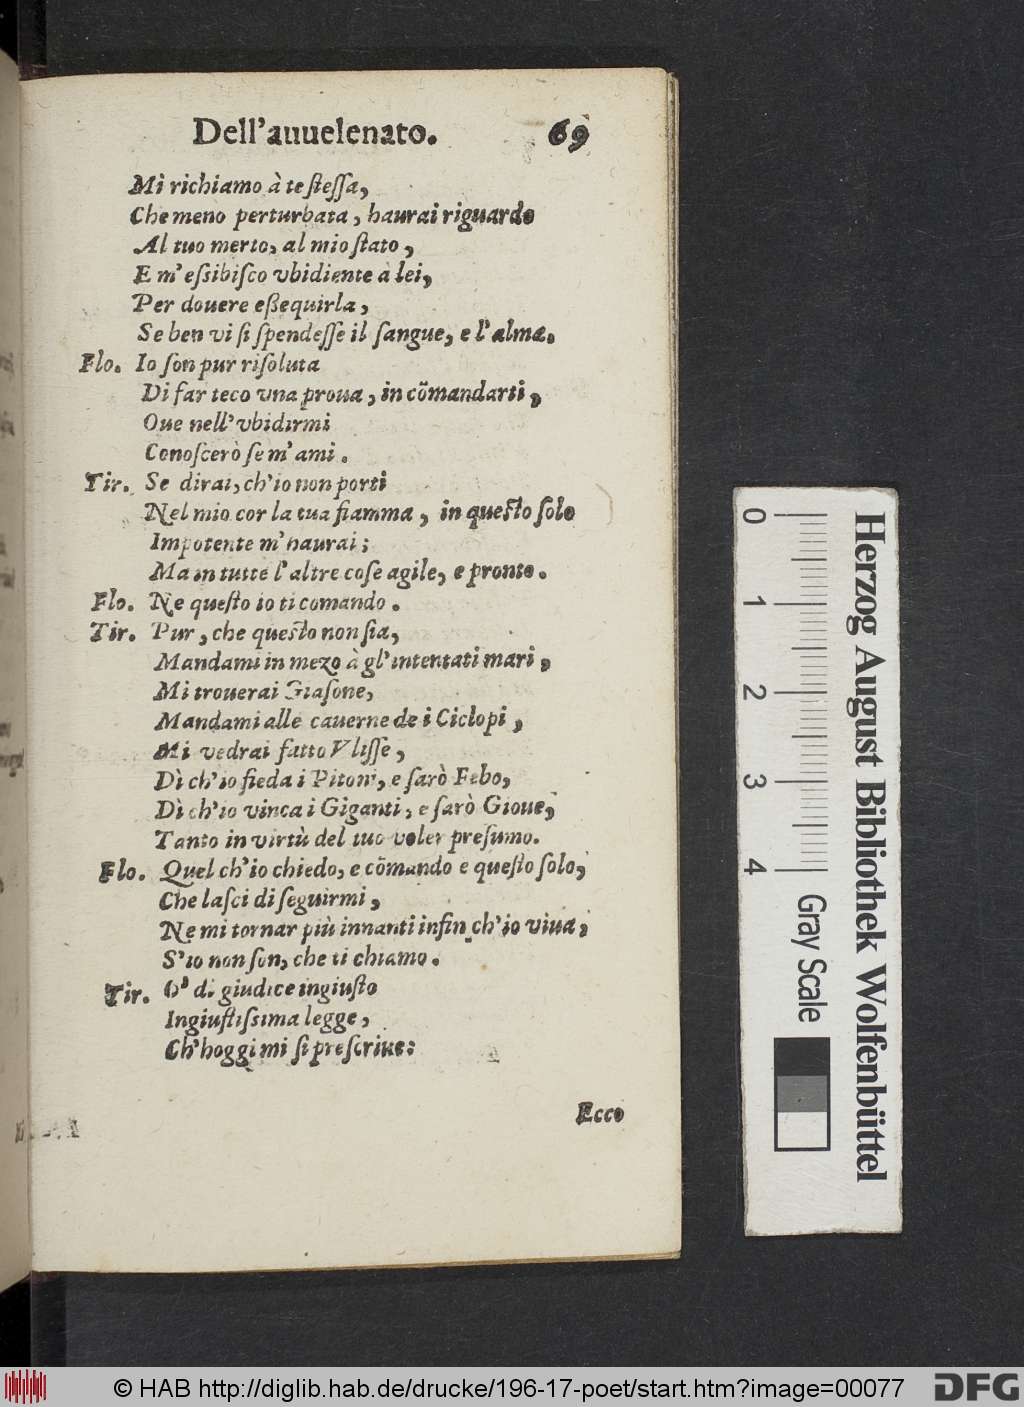 Dell'auuelenato. 69
Mi richiamo à te ſteſſa,
Che meno perturbata, haurai riguardo
Al tuo merto, al mio ſtato,
E m'eſsibiſco vbidiente à lei,
Per douere eßequirla,
Se ben vi ſi ſpendeſſe il ſangue, e l'alma.
Flo. Io ſon pur riſoluta
Di far teco vna proua, in cõmandarti,
Oue nell'vbidirmi
Conoſcerò ſe m'ami.
Tir. Se dirai, ch'io non porti
Nel mio cor la tua fiamma, in queſto ſolo
Impotente m'haurai;
Ma in tutte l'altre coſe agile, e pronto.
Flo. Ne queſto io ti comando.
Tir. Pur, che queſto non ſia,
Mandami in mezo à gl'intentati mari,
Mi trouerai Giaſone,
Mandami alle cauerne de i Ciclopi,
Mi vedrai fatto Vliſſe,
Dì ch'io fieda i Pitoni, e ſarò Febo,
Dì ch'io vinca i Giganti, e ſarò Gioue,
Tanto in virtù del tuo voler preſumo.
Flo. Quel ch'io chiedo, e cõmando e queſto ſolo,
Che laſci di ſeguirmi,
Ne mi tornar più innanti infin ch'io viua,
S'io non ſon, che ti chiamo.
Tir. O' di giudice ingiuſto
Ingiuſtiſsima legge,
Ch'hoggi mi ſi preſcriue:
Ecco
0 1 2 3 4
Herzog August Bibliothek Wolfenbüttel
Gray Scale
© HAB http://diglib.hab.de/drucke/196-17-poet/start.htm?image=00077
DFG